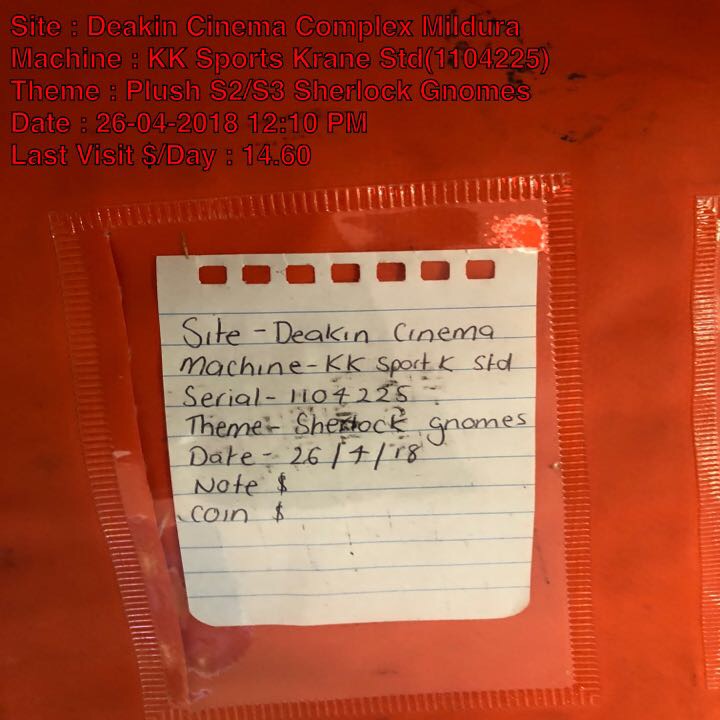 Site : Deakin Cinema Complex Mildura
Machine : KK Sports Krane Std(1104225)
Theme : Plush S2/S3 Sherlock Gnomes
Date : 26-04-2018 12:10 PM
Last Visit $/Day : 14.60
Site - Deakin Cinema
Machine - KK Sport K Std
Serial - 1104225
Theme - Sherlock gnomes
Date - 26/4/18
Note $
Coin $